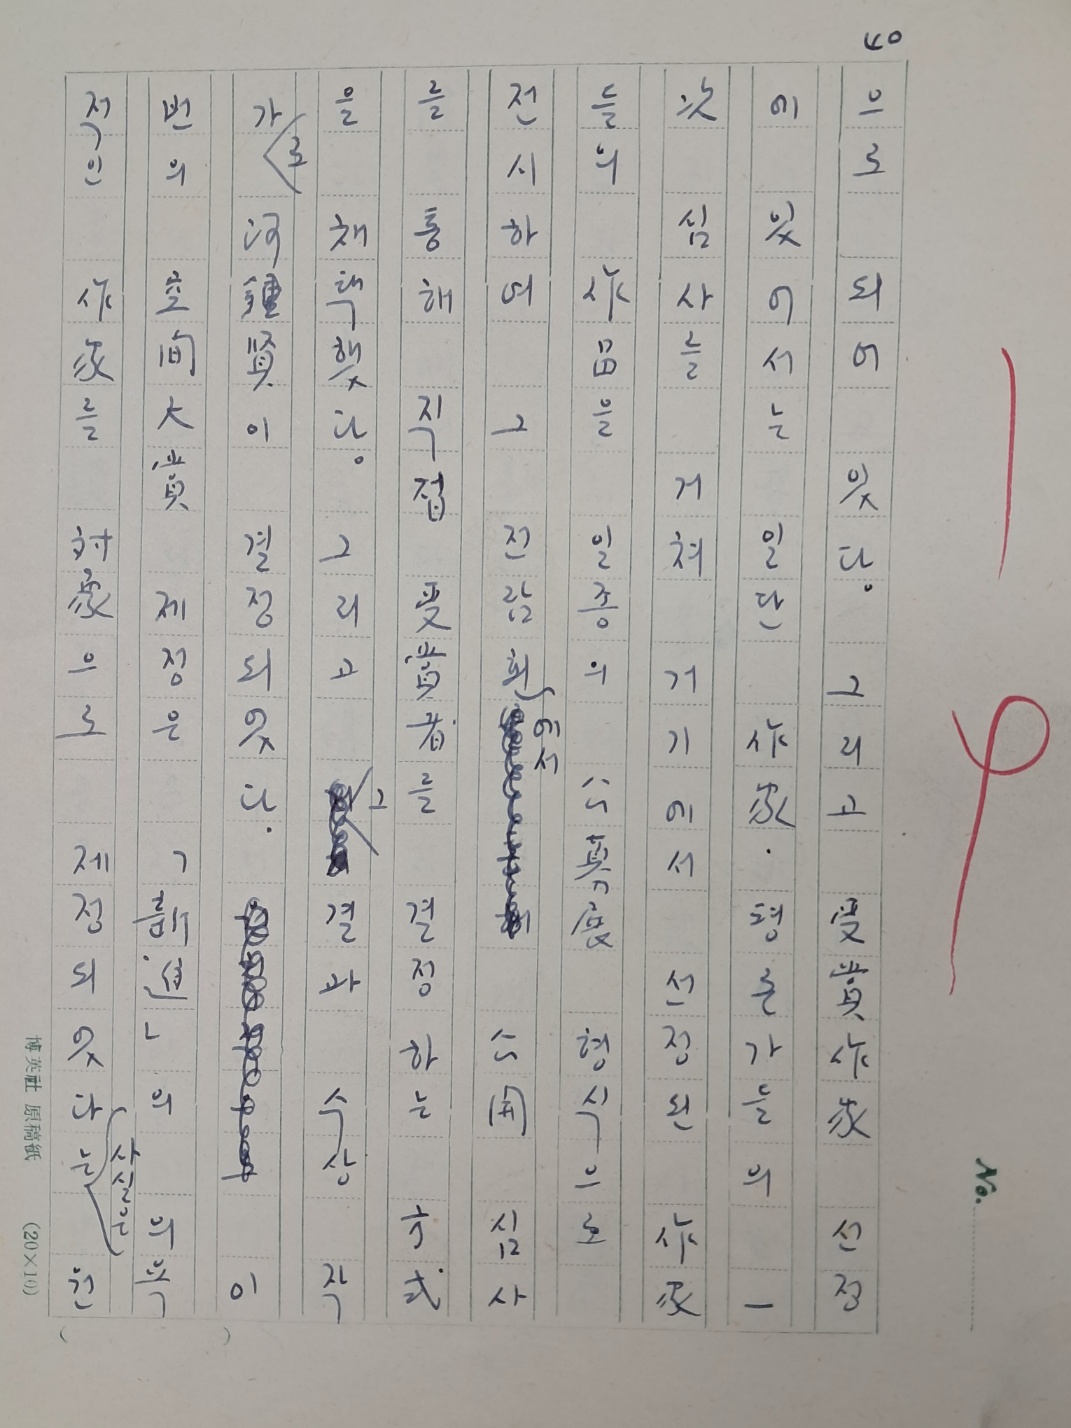 40
으로 되어 있다. 그리고 受賞作家 선정
에 있어서는 일단 作家·평론가들의 一
次 심사를 거쳐 거기에서 선정된 作家
들의 作品을 일종의 公募展 형식으로
전시하여 그 전람회에서 公開 심사
를 통해 직접 受賞者를 결정하는 方式
을 채택했다. 그리고 그 결과 수상 작
가로 河鍾賢이 결정되었다. 이
번의 空間大賞 제정은 의 의욕
적인 作家를 対象으로 제정되었다는 사실은
博英社 原稿紙 (20×10)
No.